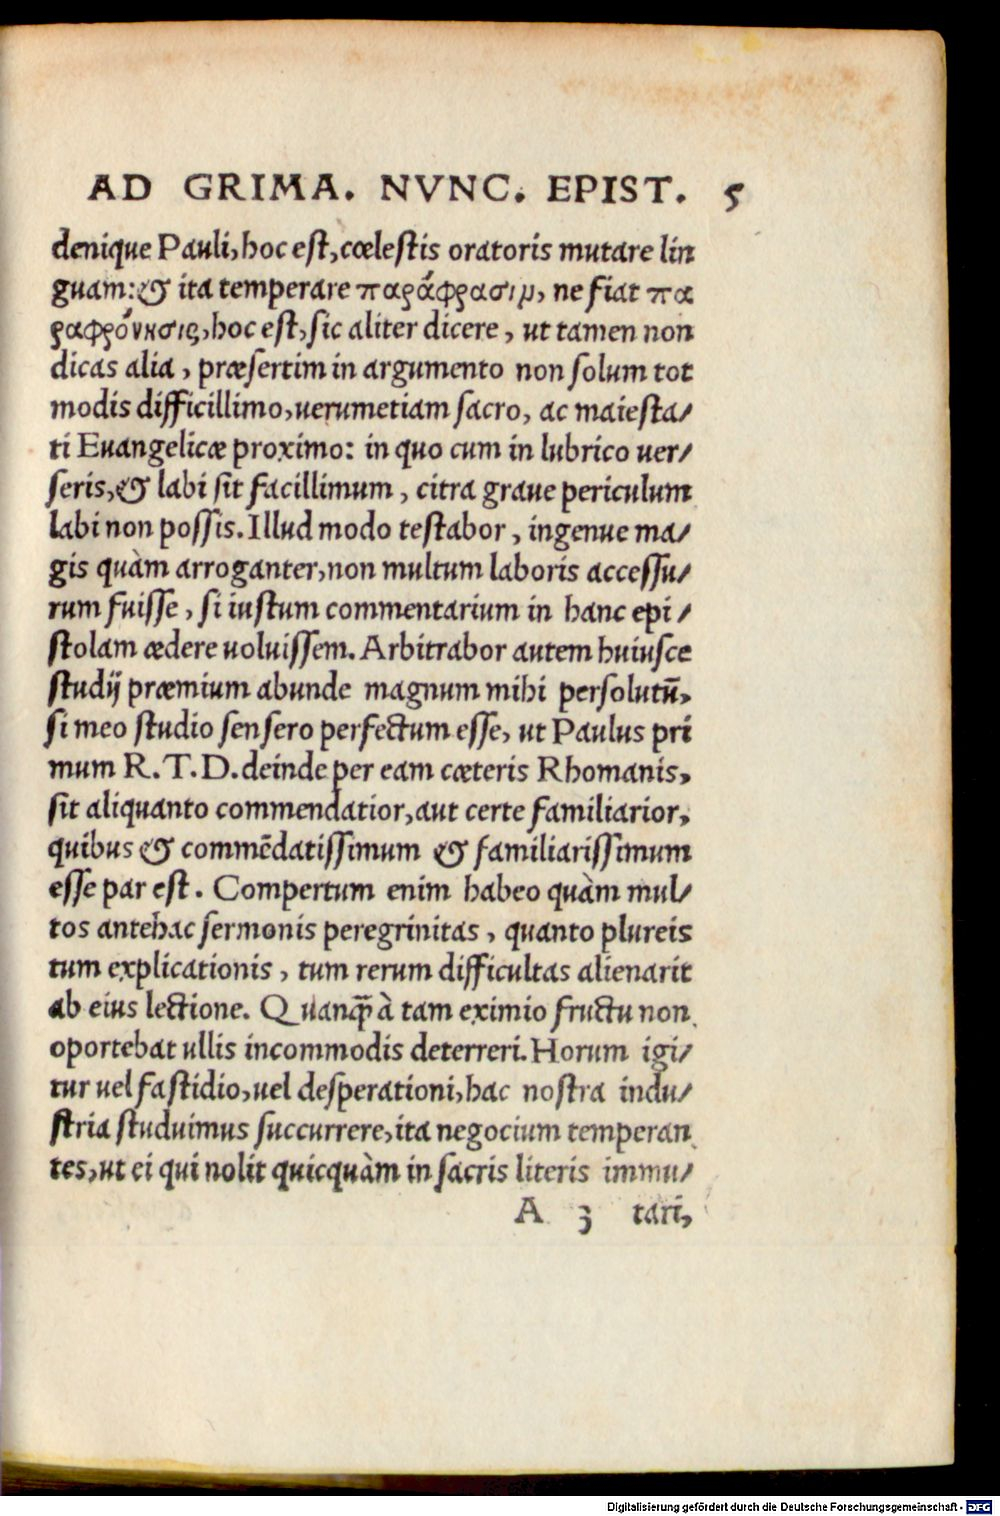 AD GRIMA. NVNC. EPIST. 5
denique Pauli, hoc est, cœlestis oratoris mutare lin
guam: & ita temperare παράφρασιμ, ne fiat πα
ραφρόνησις, hoc est, sic aliter dicere, ut tamen non
dicas alia, præsertim in argumento non solum tot
modis difficillimo, uerumetiam sacro, ac maiesta/
ti Euangelicæ proximo: in quo cum in lubrico uer/
seris, & labi sit facillimum, citra graue periculum
labi non possis. Illud modo testabor, ingenue ma/
gis quàm arroganter, non multum laboris accessu/
rum fuisse, si iustum commentarium in hanc epi/
stolam ædere uoluissem. Arbitrabor autem huiusce
studij præmium abunde magnum mihi persolutũ,
si meo studio sensero perfectum esse, ut Paulus pri
mum R. T. D. deinde per eam cæteris Rhomanis,
sit aliquanto commendatior, aut certe familiarior,
quibus & commẽdatissimum & familiarissimum
esse par est. Compertum enim habeo quàm mul/
tos antehac sermonis peregrinitas, quanto plureis
tum explicationis, tum rerum difficultas alienarit
ab eius lectione. Quanq̃ à tam eximio fructu non
oportebat ullis incommodis deterreri. Horum igi/
tur uel fastidio, uel desperationi, hac nostra indu/
stria studuimus succurrere, ita negocium temperan
tes, ut ei qui nolit quicquàm in sacris literis immu/
A 3 tari,
Digitalisierung gefördert durch die Deutsche Forschungsgemeinschaft - DFG